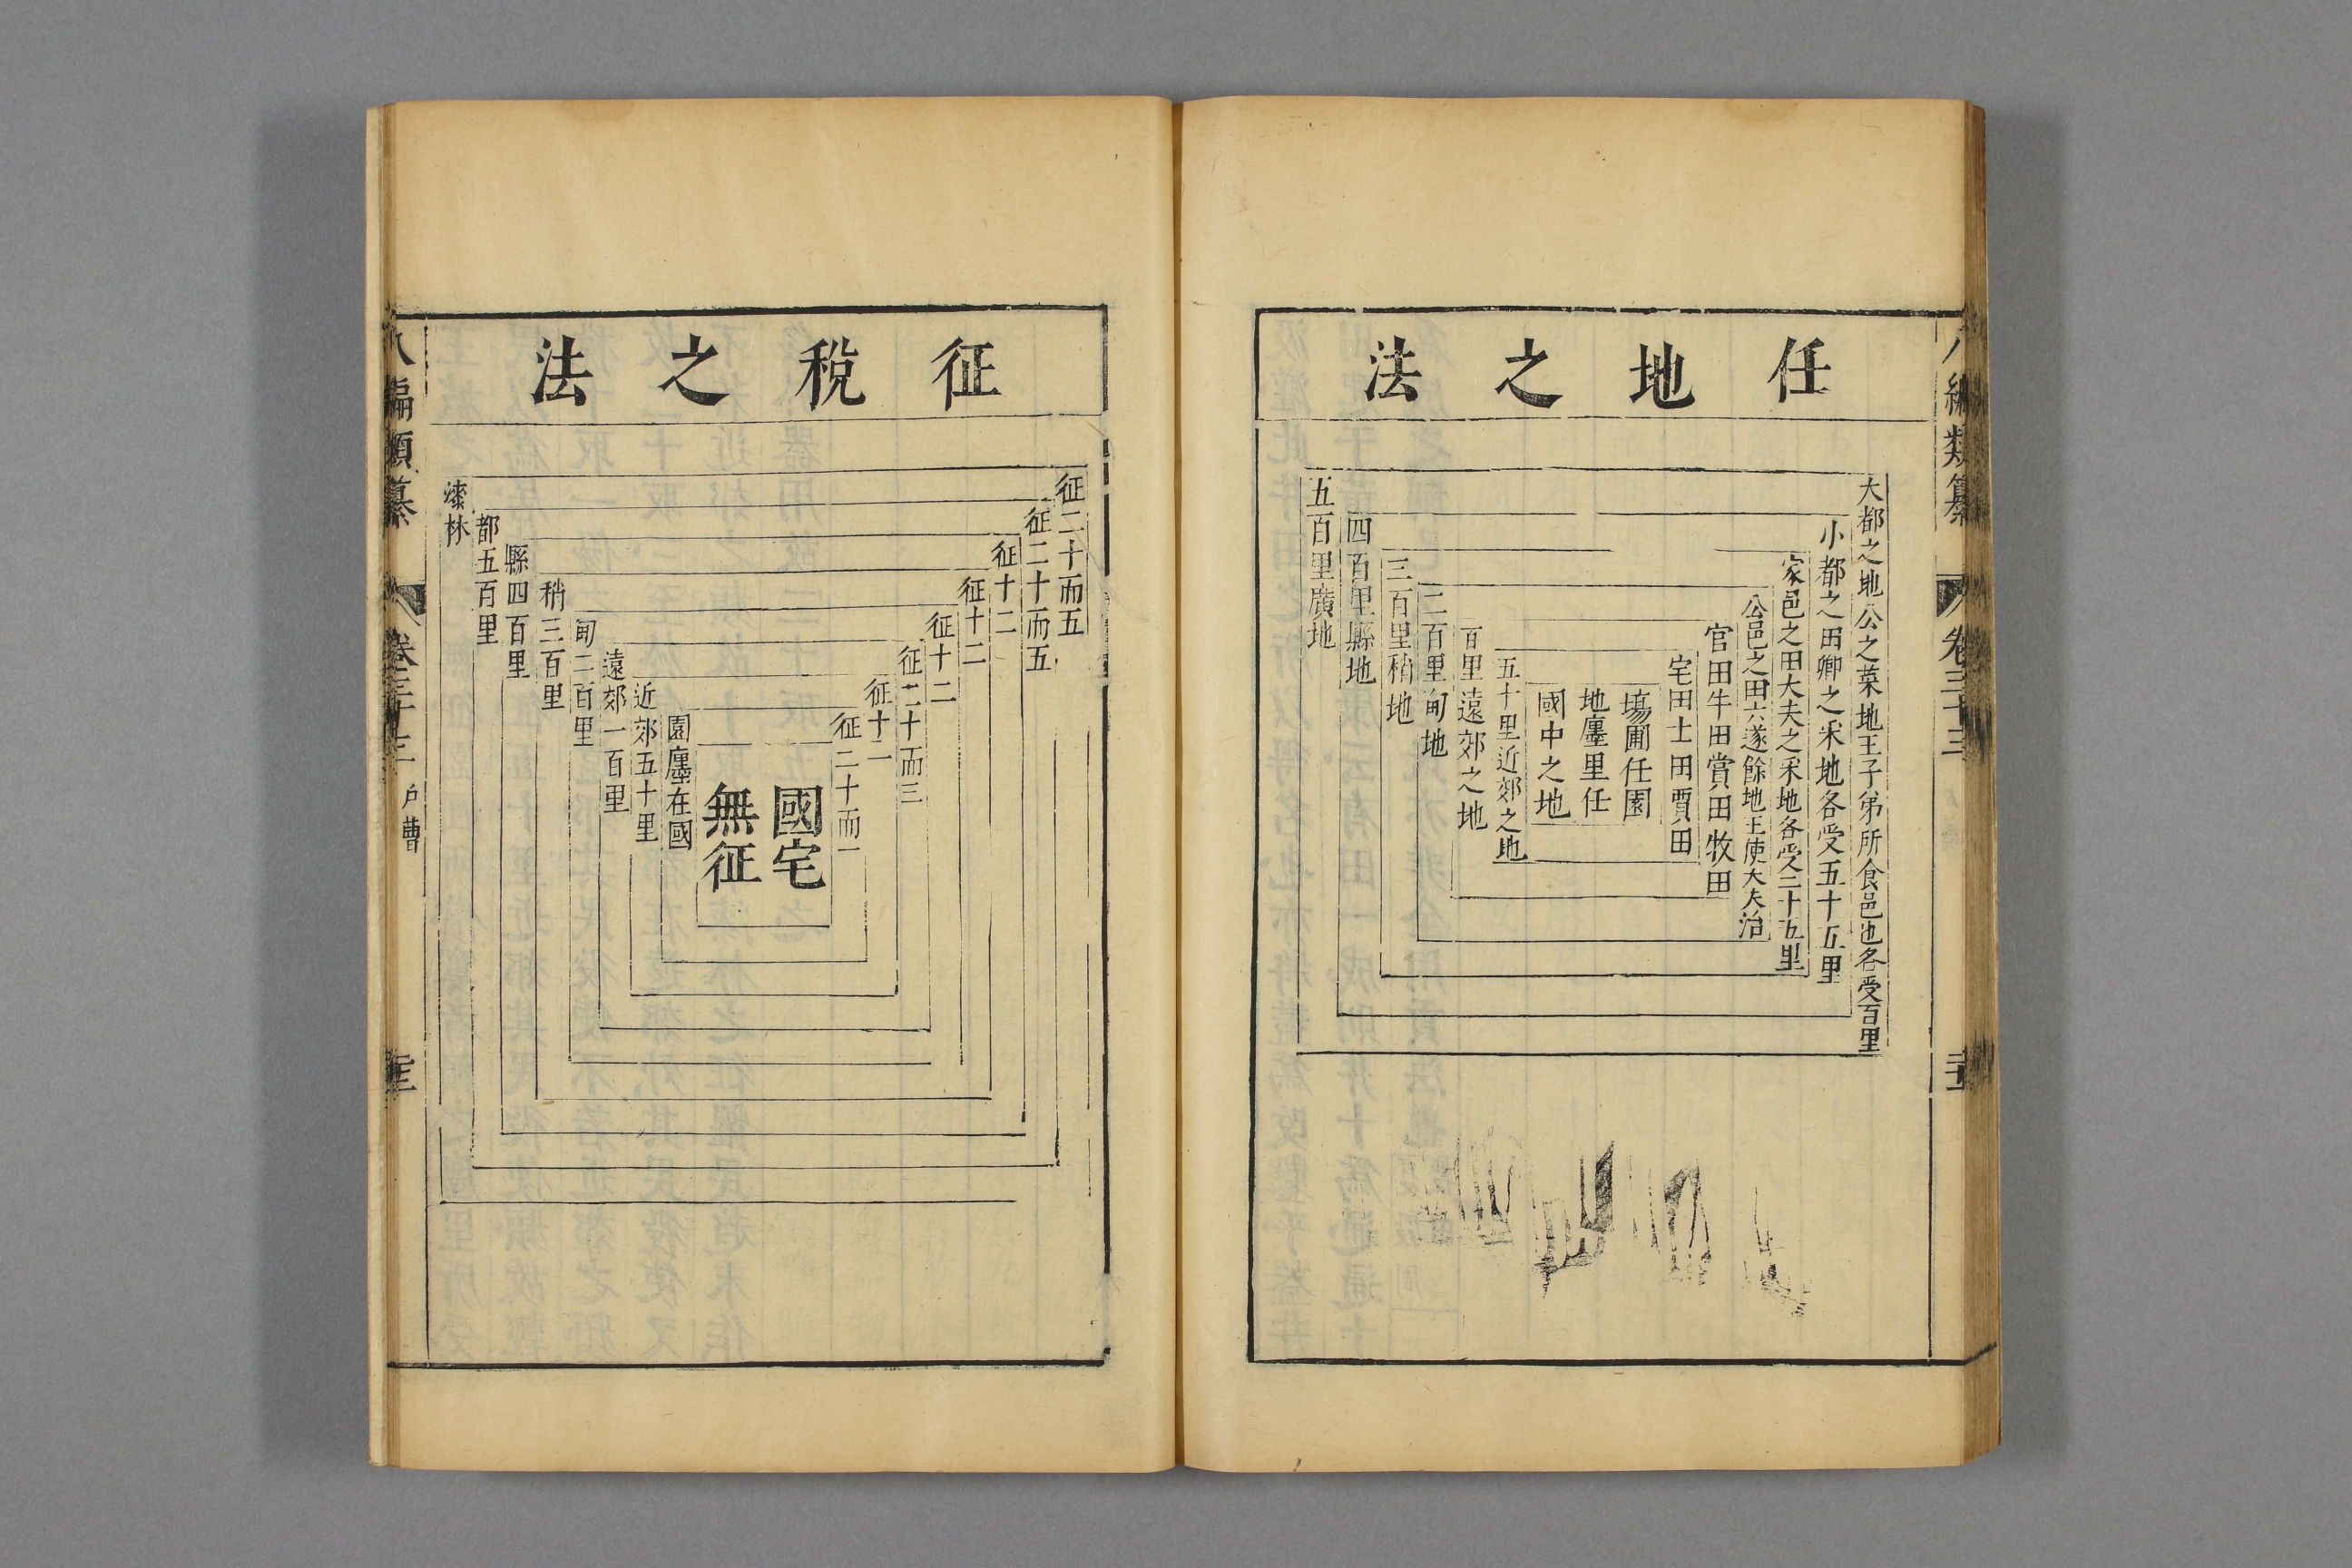 八編類纂
卷三十三
任地之法
大都之地公之菜地王子弟所食邑也各受百里
小都之田卿之采地各受五十五里
家邑之田大夫之采地各受二十五里
公邑之田六遂餘地王使大夫治
官田牛田賞田牧田
宅田士田賈田
塲圃任園
地廛里任
國中之地
五十里近郊之地
百里遠郊之地
二百里甸地
三百里稍地
四百里縣地
五百里廣地
征稅之法
征二十而五
征二十而五
征十二
征十二
征十二
征二十而三
征十二
征二十而一
國宅
無征
園廛在國
近郊五十里
遠郊一百里
甸二百里
稍三百里
縣四百里
都五百里
漆林
八編類纂
卷三十三
戶曹